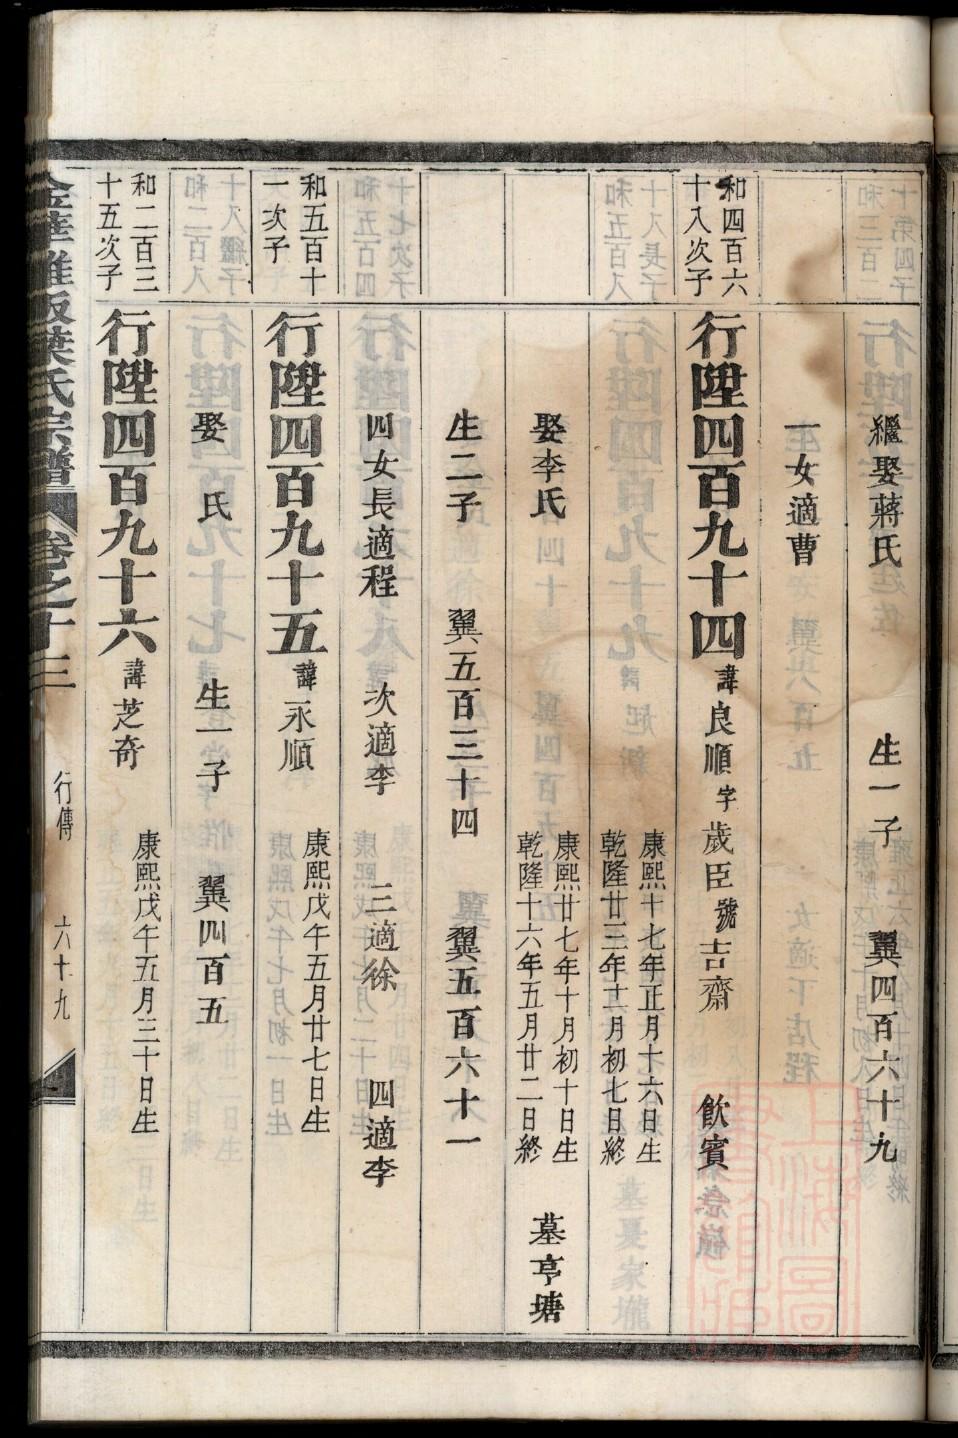 繼娶蔣氏 生一子 翼四百六十九
一女適曹
和四百六
十八次子
行陞四百九十四 諱良順 字歲臣 號吉齋 飲賓
康熙十七年正月十六日生
乾隆廿三年十一月初七日終
娶李氏
康熙廿七年十月初十日生
乾隆十六年五月廿二日終
墓亭塘
生二子 翼五百三十四 翼五百六十一
四女長適程 次適李 三適徐 四適李
和五百十
一次子
行陞四百九十五 諱永順
康熙戊午五月廿七日生
娶 氏 生一子 翼四百五
和二百三
十五次子
行陞四百九十六 諱芝奇
康熙戊午五月三十日生
葉氏宗譜 卷之十三 行傳 六十九